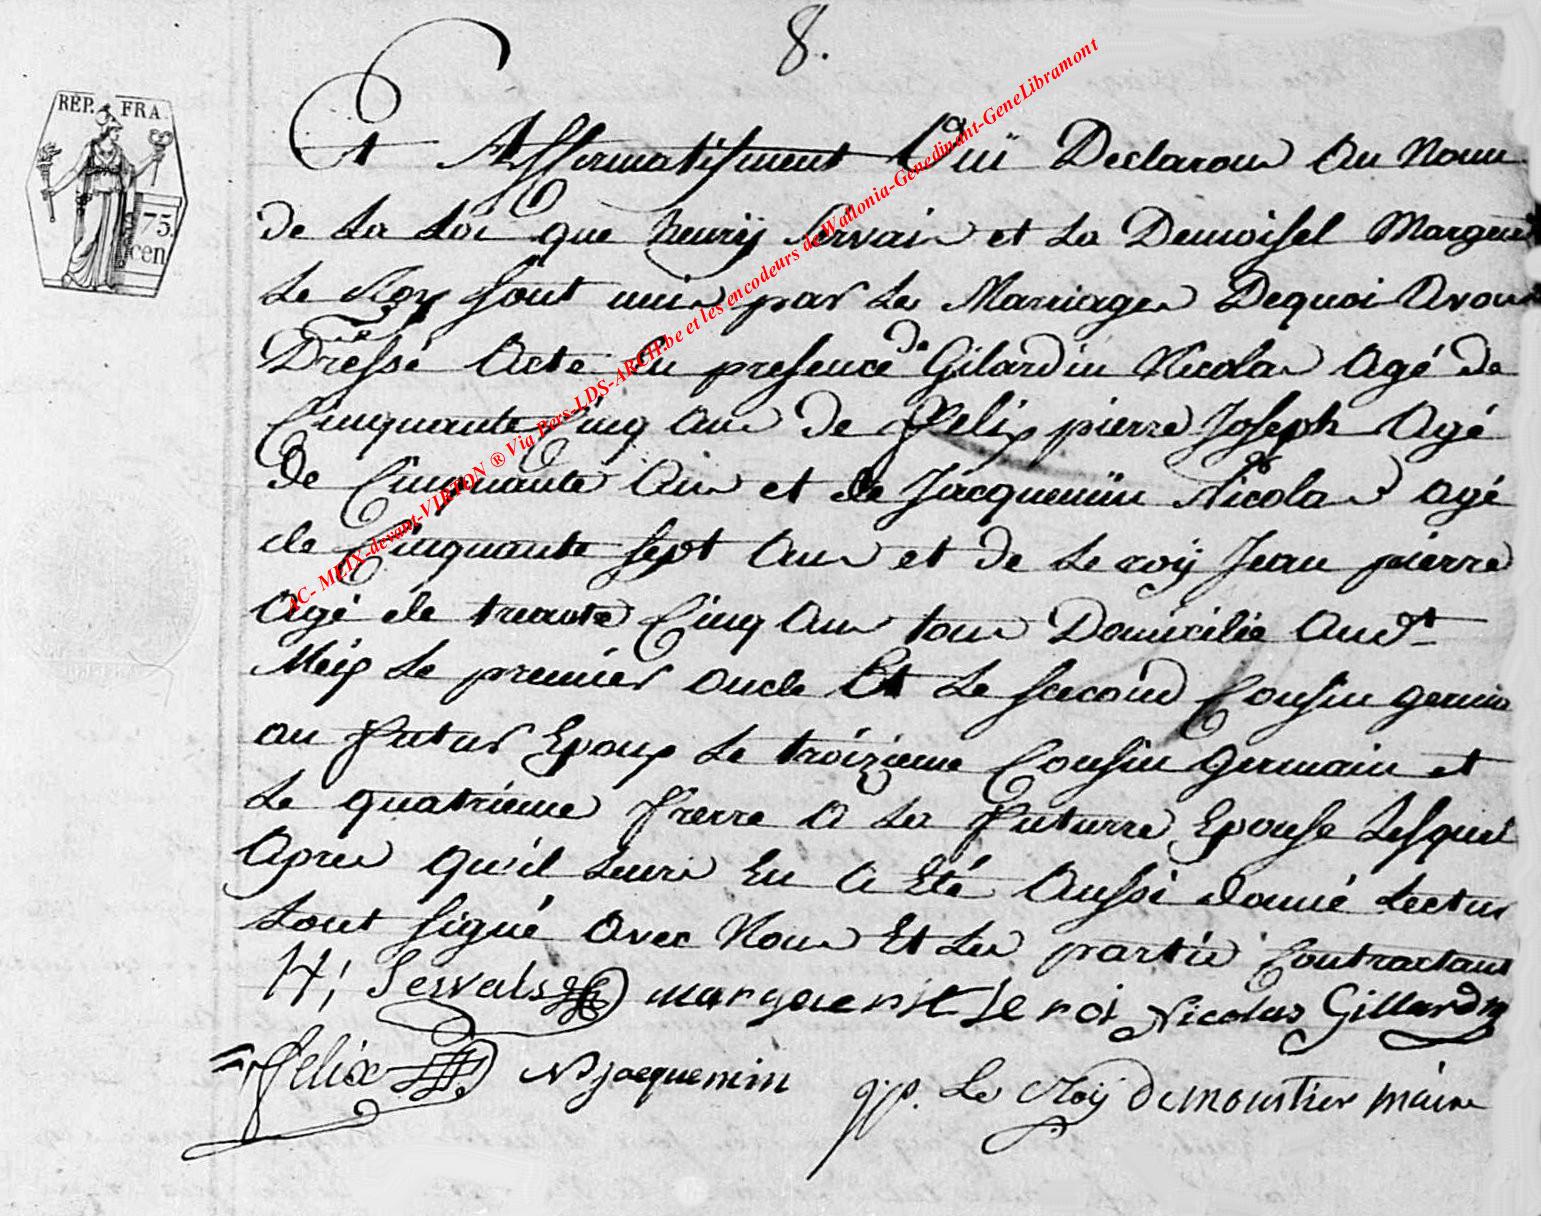 8.
REP. FRA
75.
cen
Et Affirmatifsment Ouï Declarons Au Nom
de La Loi que henrÿ Servais et La Demoisel Margue
Le Roy sont unis par Le Marriages Dequoi Avons
Dressé Acte En presence de Gilardin Nicolas Agé de
Cinquante Cinq Ans de Felix pierre Joseph Agé
de Cinquante Ans et de Jacqueminn Nicolas agé
de Cinquante sept Ans et de Le roÿ Jean pierre
Agé de trente Cinq Ans tous Domicilié Audt
Meix Le premier oncle Et Le second Cousin germin
au futur Epoux Le troizieme Cousin germain et
Le quatrieme frerre a La futurre Epouse Lesquel
Apres qu'il Leurs En a Eté Aussi donné Lectur
Sont signé Avec Nous Et Les partie Contractant
H: Servais marguerit le roi Nicolas Gillardin
Felix N jacquemin jp. Le Roÿ Demoustier maire
AC- MEIX-devant-VIRTON ® Via Pers-LDS-ARCH.be et les encodeurs de Wallonia-Genedinant-GeneLibramont